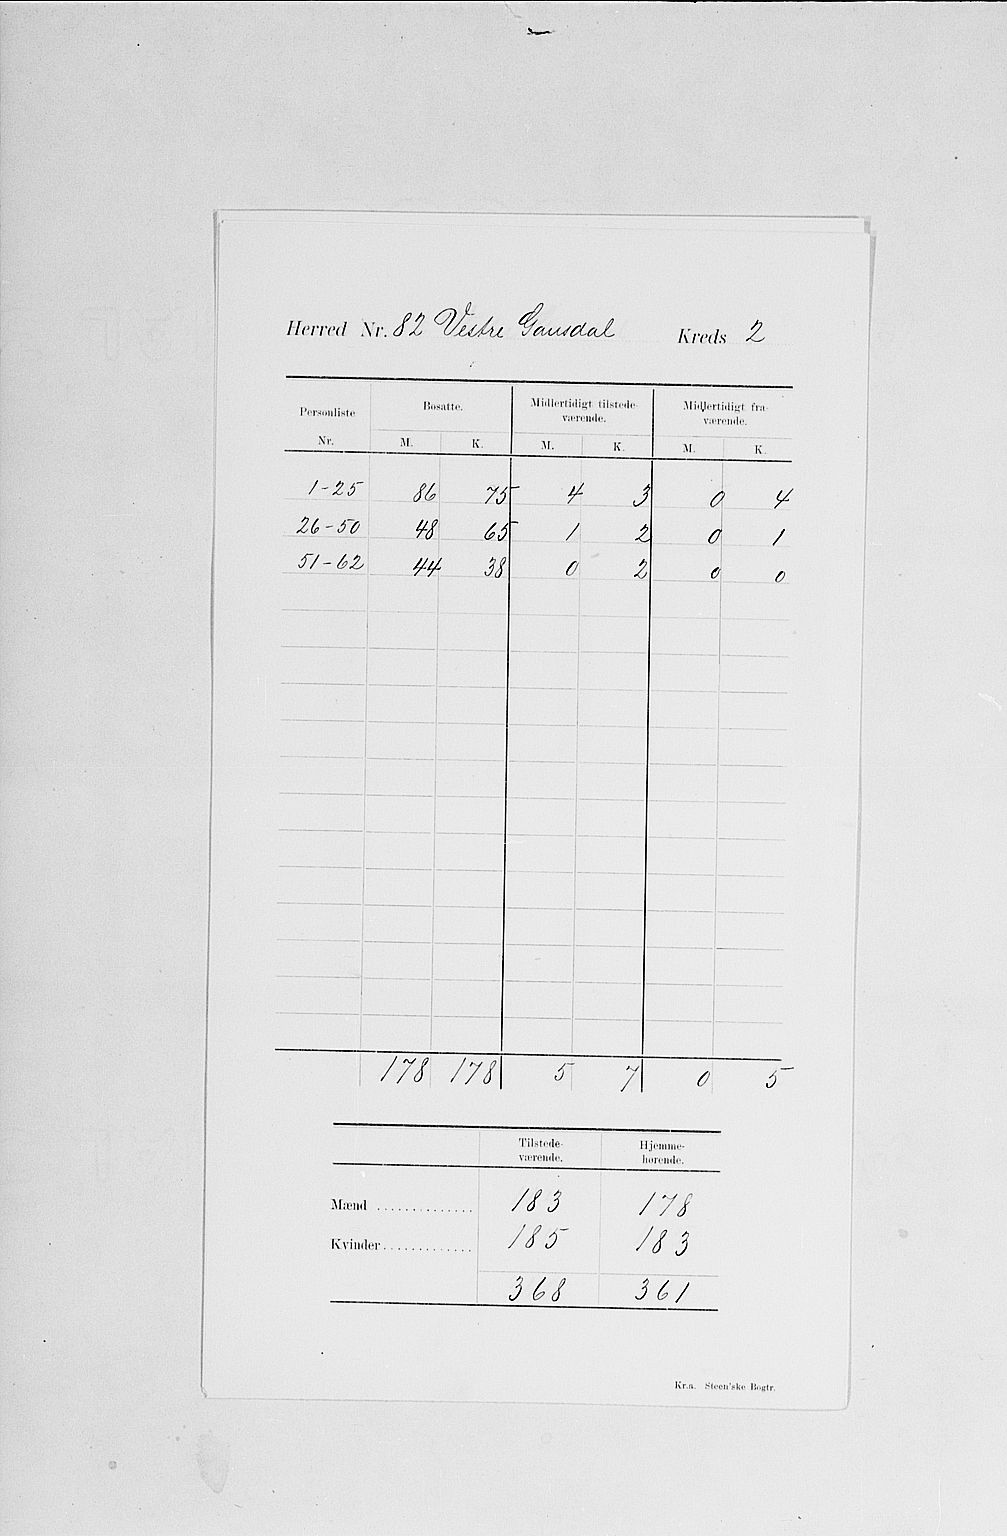 Herred Nr. 82 Vestre Gausdal Kreds 2
Personliste Nr. Bosatte. Midlertidigt tilstede- værende. Midlertidigt fra- værende.
M. K. M. K. M. K.
1-25 86 75 4 3 0 4
26-50 48 65 1 2 0 1
51-62 44 38 0 2 0 0
178 178 5 7 0 5
Tilstede- værende. Hjemme- hørende.
Mænd .............. 183 178
Kvinder............. 185 183
368 361
Kr.a. Steen'ske Bogtr.